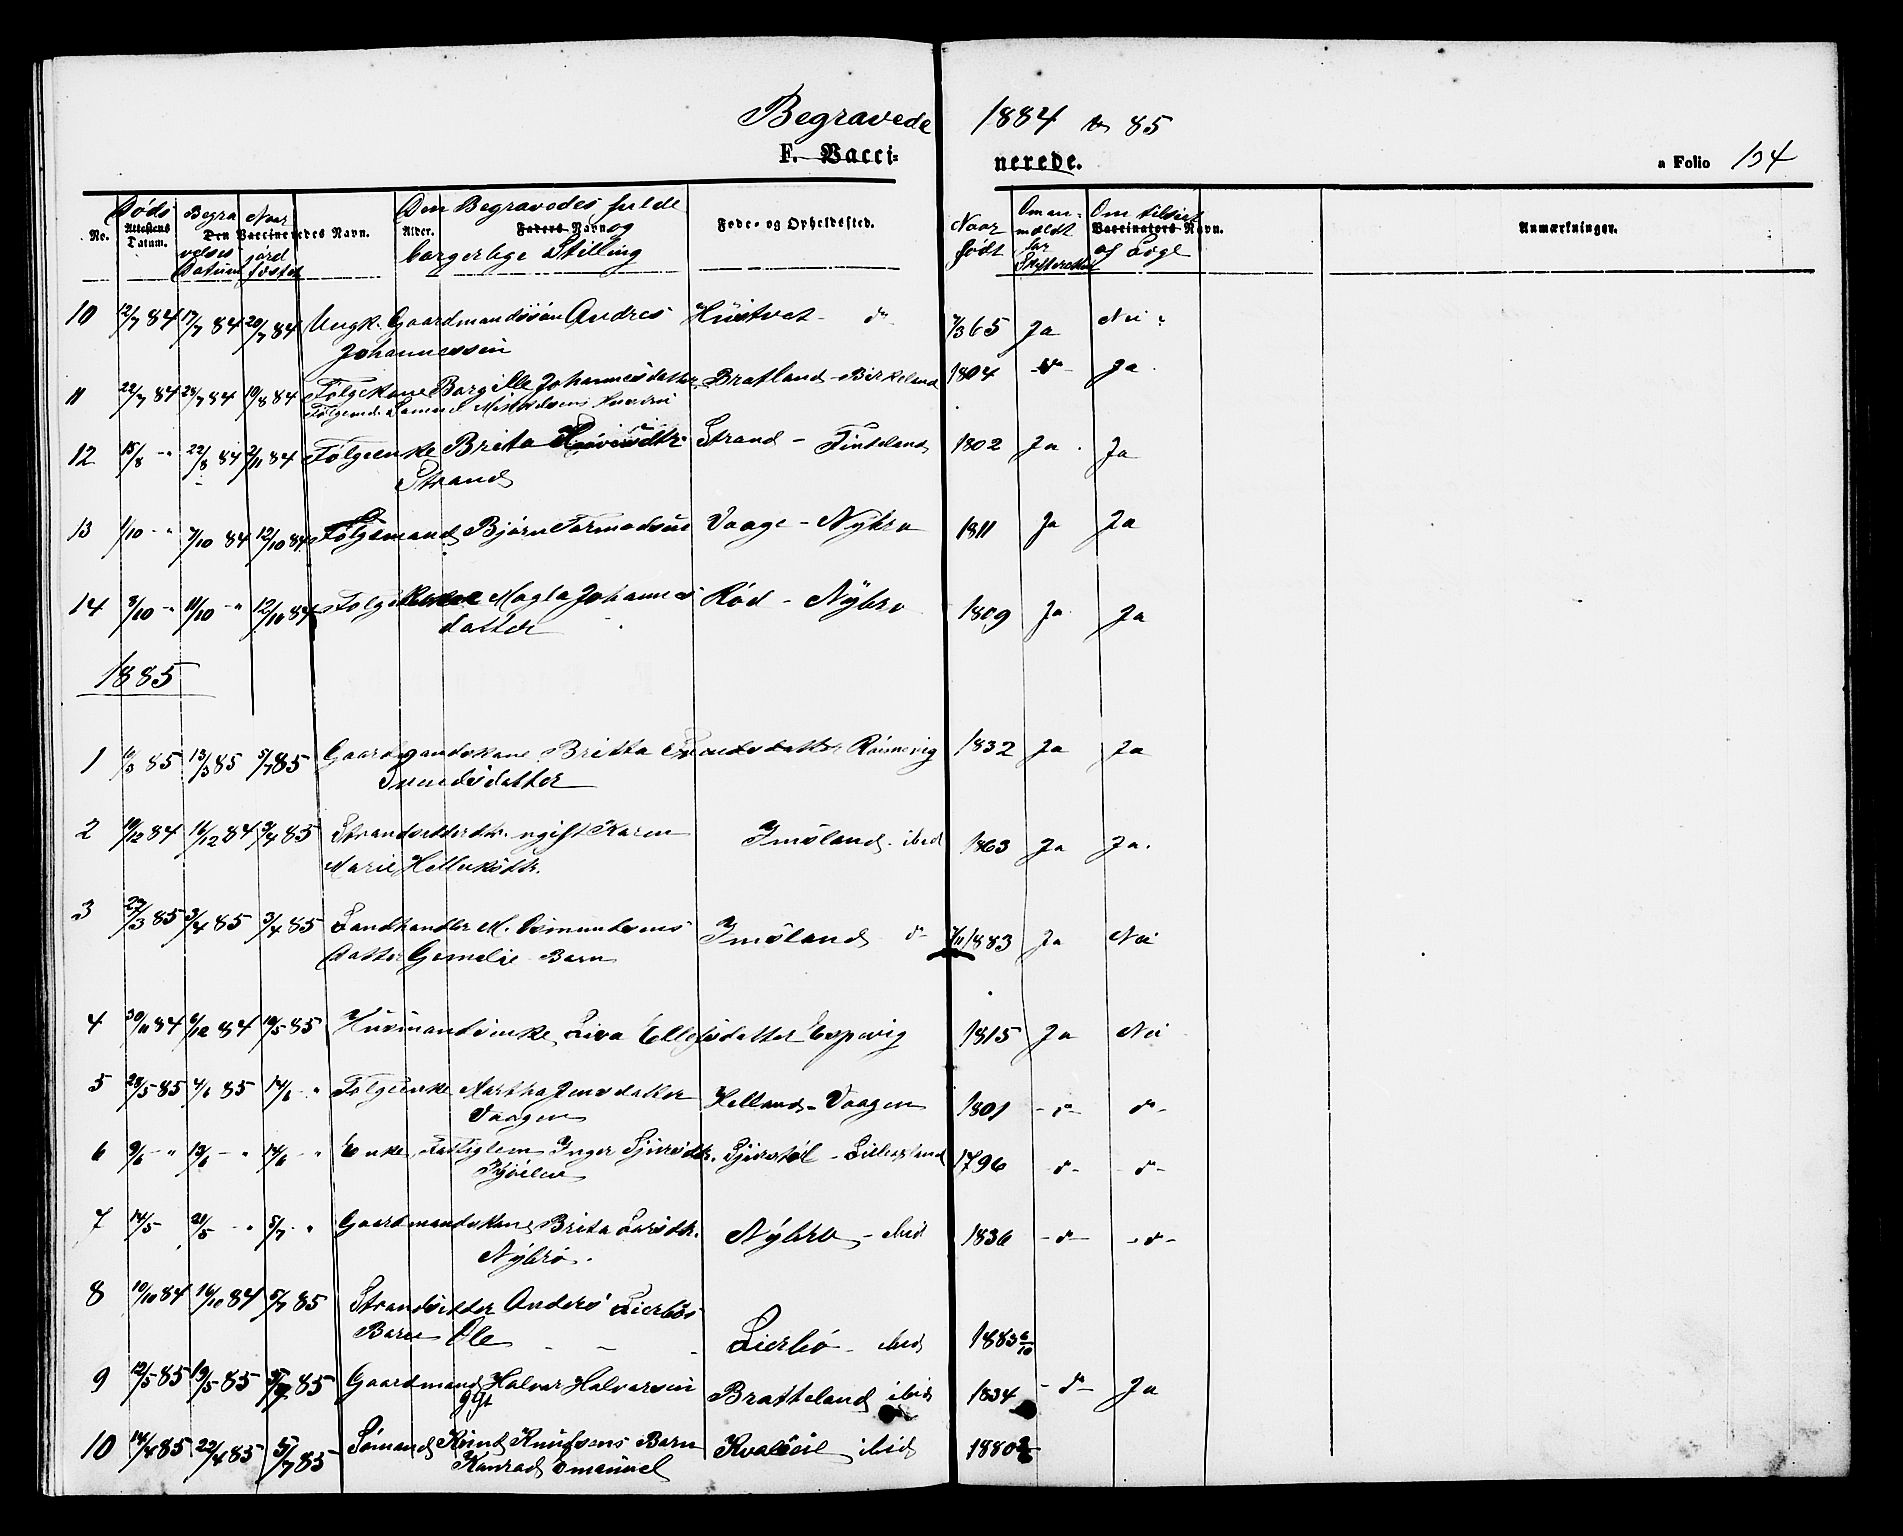 Begravede 1884 & 85
F. Vacci- nerede. a Folio 134
No. Døds Attestens Datum. Begravelses Datum Naar jordfæstet Den Vaccineredes Navn. Alder. Den Begravedes fulde Faders Navn og borgerlige Stilling Føde- og Opholdssted. Naar født Om anmeldt for Skifteretten Om tilseet af Læge Vaccinators Navn. Anmærkninger.
10 12/7 84 17/7 84 20/7 84 Ungk. Gaardmandssøn Andres Hustvet d° 7/3 65 Ja Nei
Johannessen
11 22/7 84 28/7 84 10/8 84 Følgekone Borgille Johannesdatter Bratland - Birkeland 1804 d° Ja
12 15/8 - " 22/8 84 2/11 84 Følgeenke Brita Strand - Tindeland 1802 Ja Ja
Strand
13 1/10 - " 7/10 84 12/10 84 Følgemand Bjørn Tormodsen Vaage - Nybrø 1811 Ja Ja
14 3/10 - " 11/10 - " 12/10 84 Følgekone Magla Johannes Rød - Nybrø 1809 Ja Ja
datter
1885
1 85 13/3 85 5/7 85 Gaardmandskone Britta Rønnevig 1832 Ja Ja
datter
2 10/12 84 16/12 84 3/4 85 Strandsidderdtr. ugift Karen Imsland - ibid 1863 Ja Ja.
Marie
3 27/3 85 3/4 85 3/4 85 Landhandler M. Osmundsens Imsland d° 1883 Ja Nei
datter Barn
4 30/11 84 6/12 84 10/5 85 Husmandsenke Siva Ellefsdatter Espevig 1815 Ja Nei
5 28/5 85 4/6 85 14/6 - " Følgeenke Martha Jensdatter Helland - Vaagen 1801 - d° - d° -
Vaagen
6 9/6 - " 13/6 - " 14/6 - " Enke Fattiglem Inger 1796 - d° - - d° -
7 14/5 21/5 - " 5/7 - " Gaardmandskone Brita Larsdtr. Nybrø - ibid 1836 - d° - - d° -
Nybrø.
8 10/10 84 16/10 84 5/7 85 Strandsidder Anders Lierbøs Lierbø - ibid 1883 6/10
Barn Ole
9 12/5 85 19/5 85 5/7 85 Gaardmand Halvor Halvorsen Bratteland ibid 1834 - d° - Ja
gift
10 14/4 85 22/4 85 5/7 85 Sømand Knud Knudsens Barn ibid 1880
Konrad Emanuel